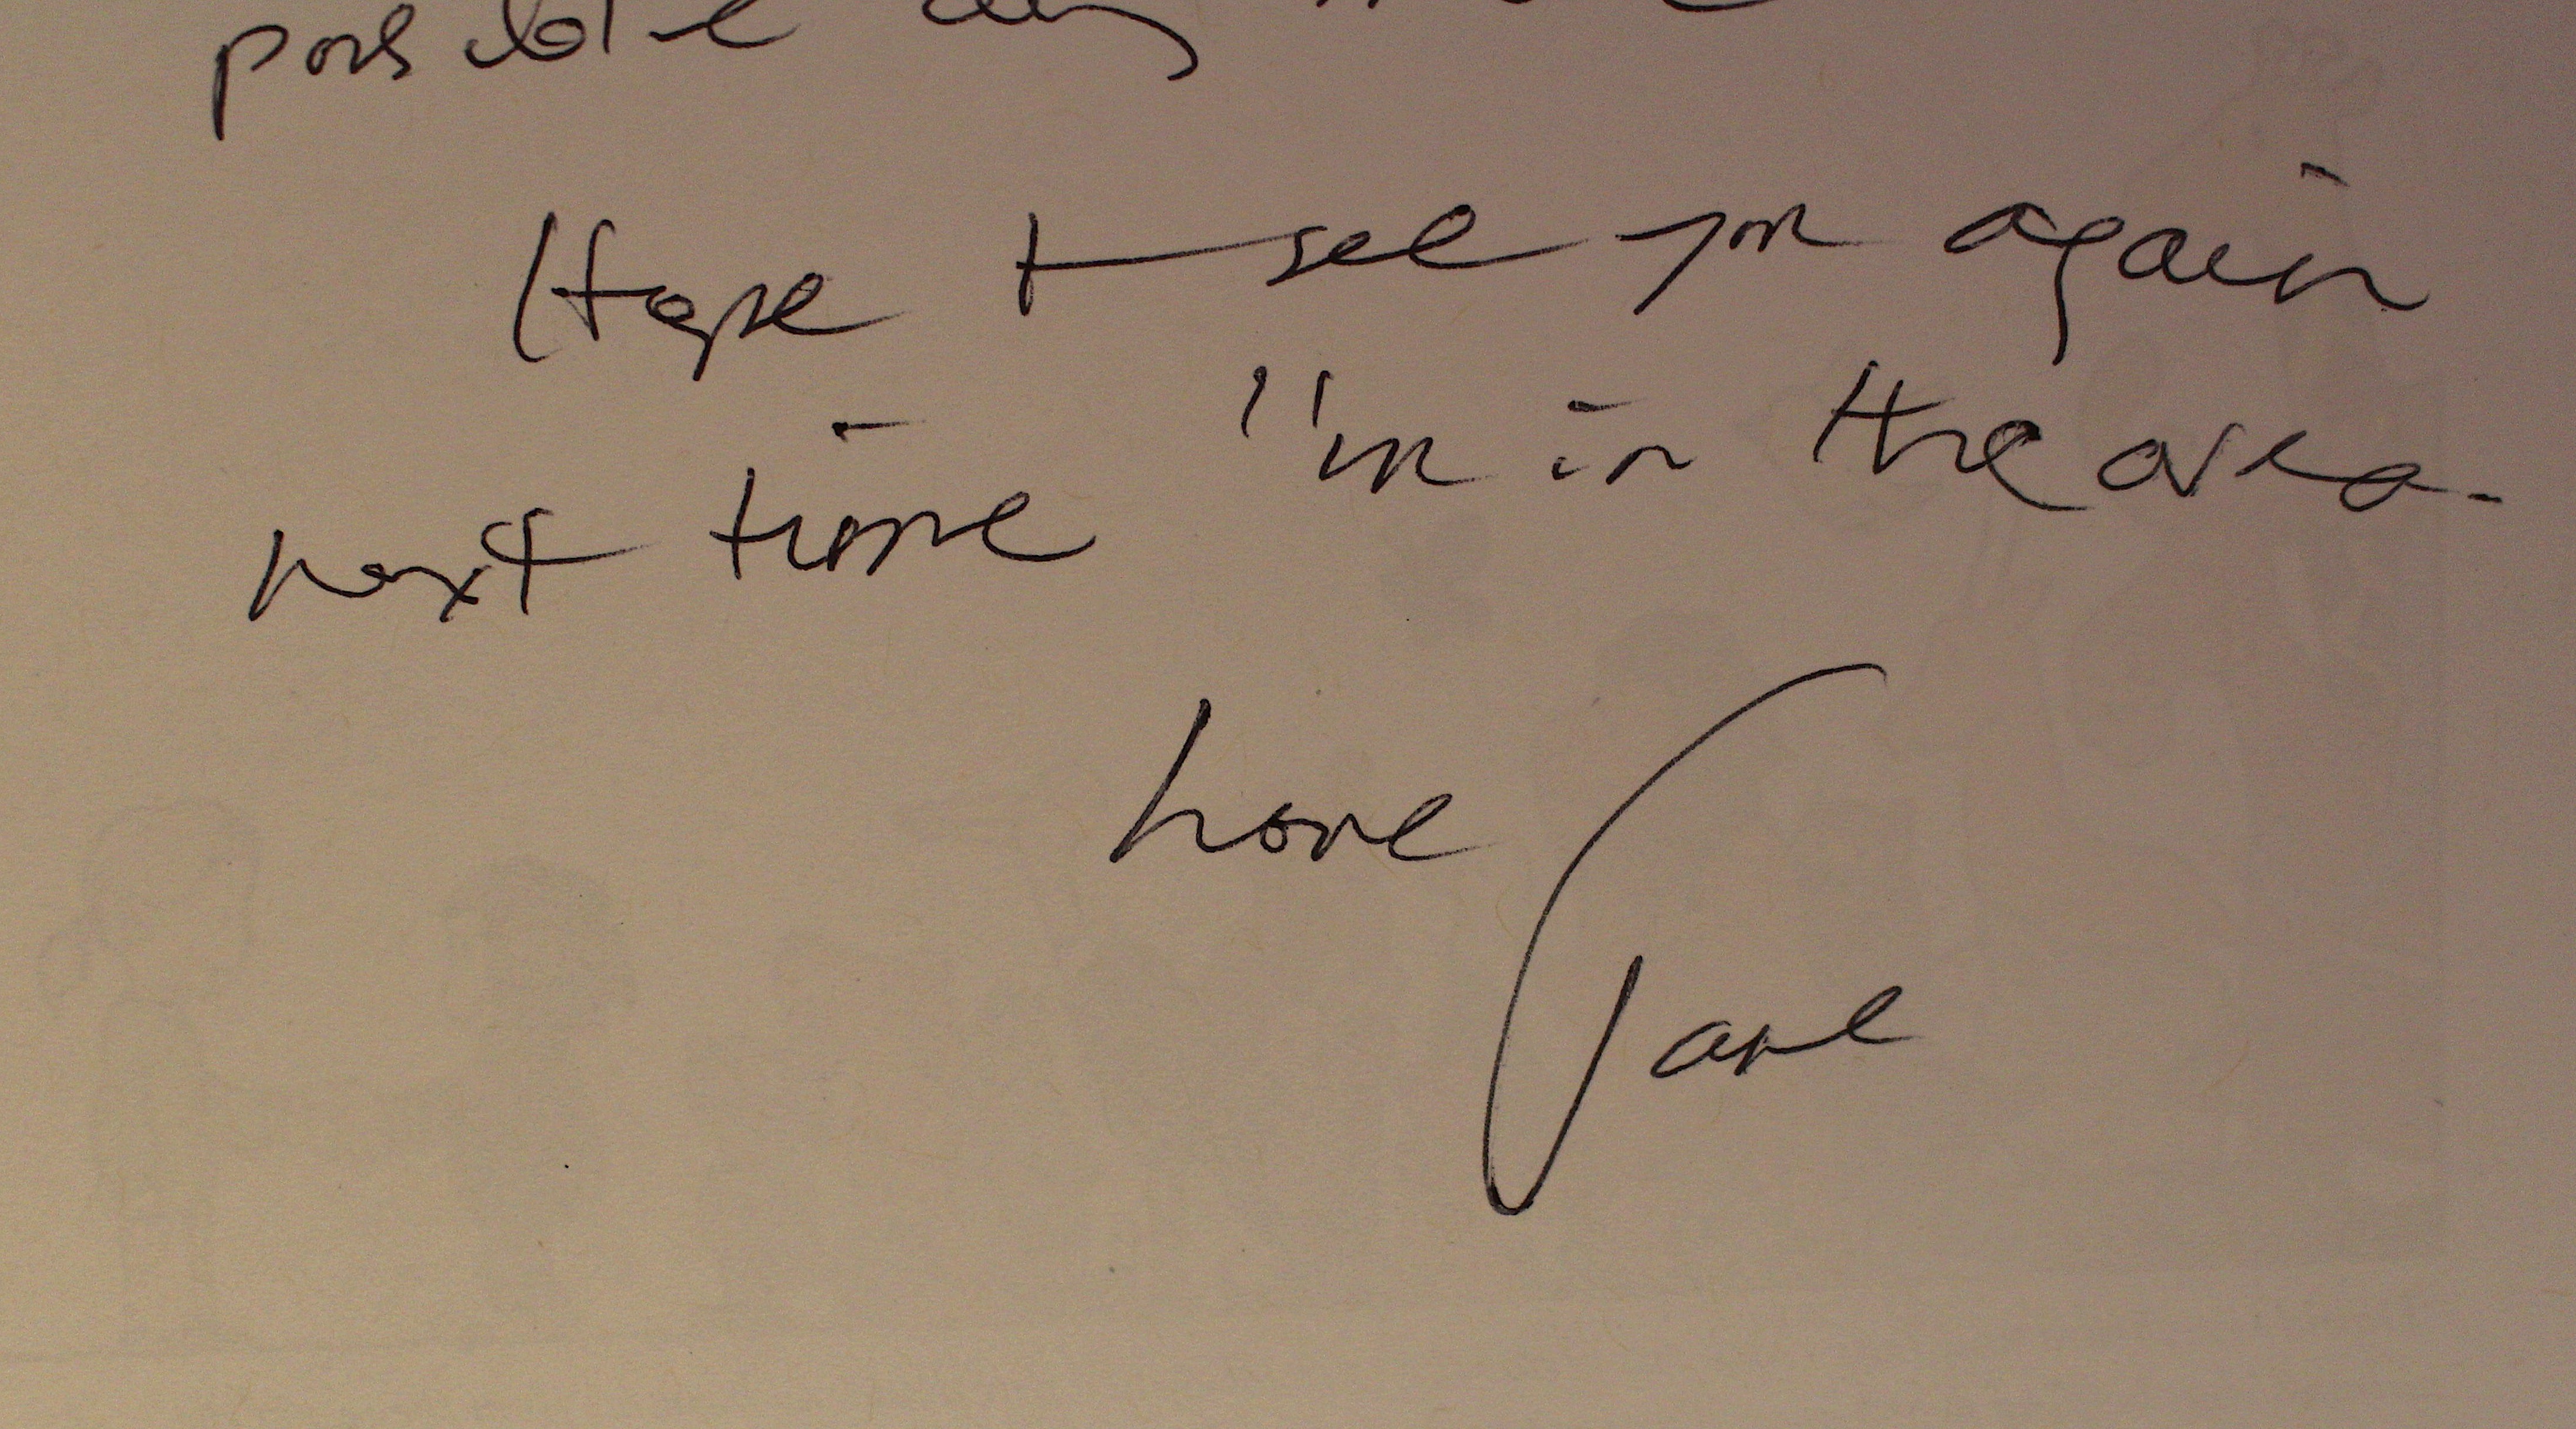 possible any more
Hope to see you again
next time I'm in the area.
Love
Jane